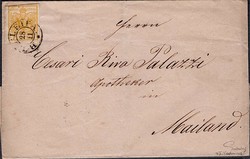 Herrn
Cesari Riva Palazzi
Apotheker
in
Mailand.